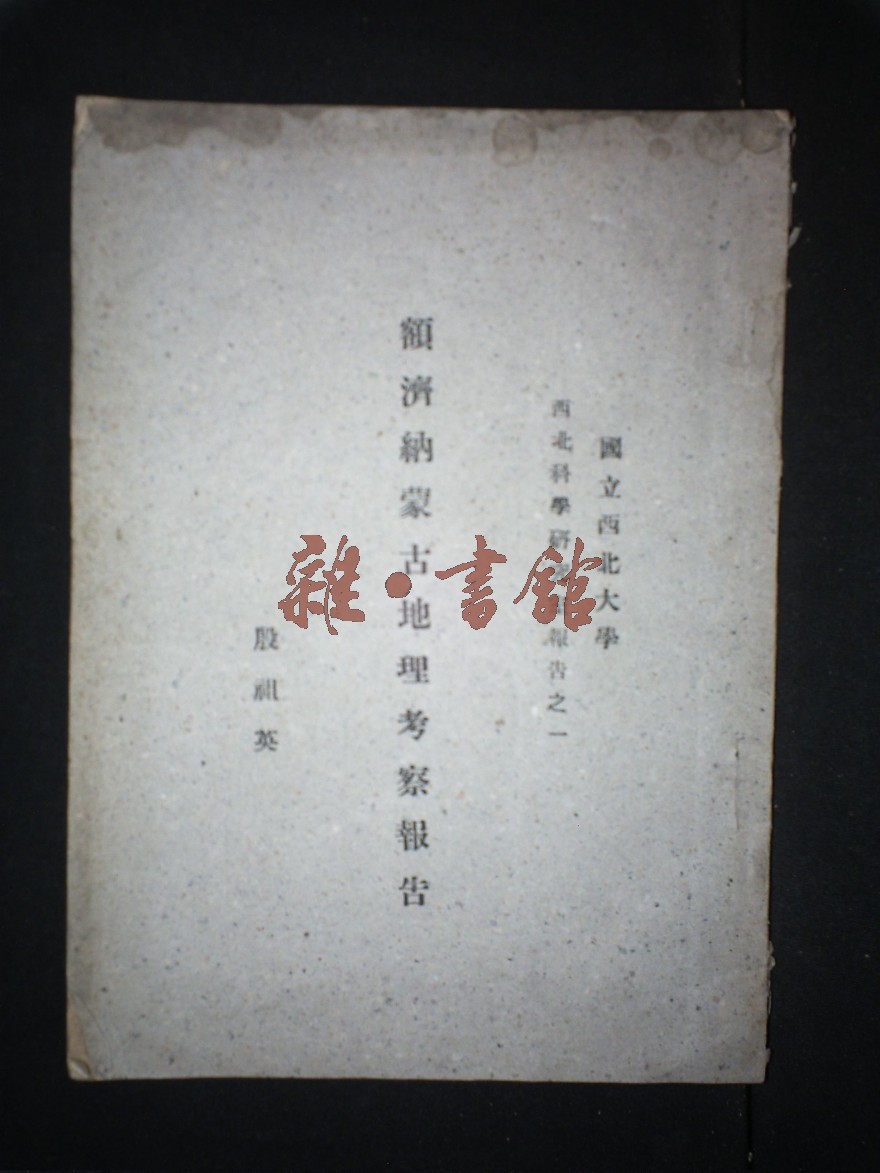 國立西北大學
西北科學研究所報告之一
額濟納蒙古地理考察報告
殷祖英
雜·書館